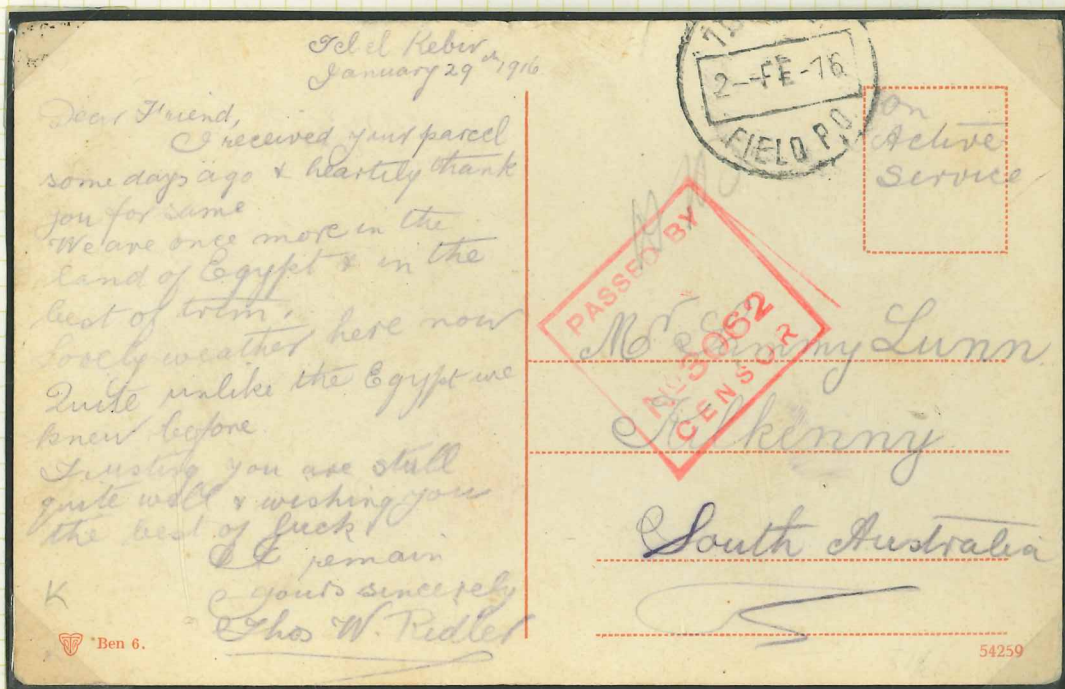 Tel el Kebir
January 29th 1916
Dear Friend,
I received your parcel
some days ago & heartily thank
you for same
We are once more in the
land of Egypt & in the
best of trim.
Lovely weather here now
Quite unlike the Egypt we
knew before
Trusting you are still
quite well & wishing you
the best of luck
I remain
yours sincerely
Thos W. Ridler
K
Ben 6.
2--FE-16
FIELD P.O.
On
Active
Service
PASSED BY
No 3062
CENSOR
Mr Sammy Lunn
Kilkenny
South Australia
54259